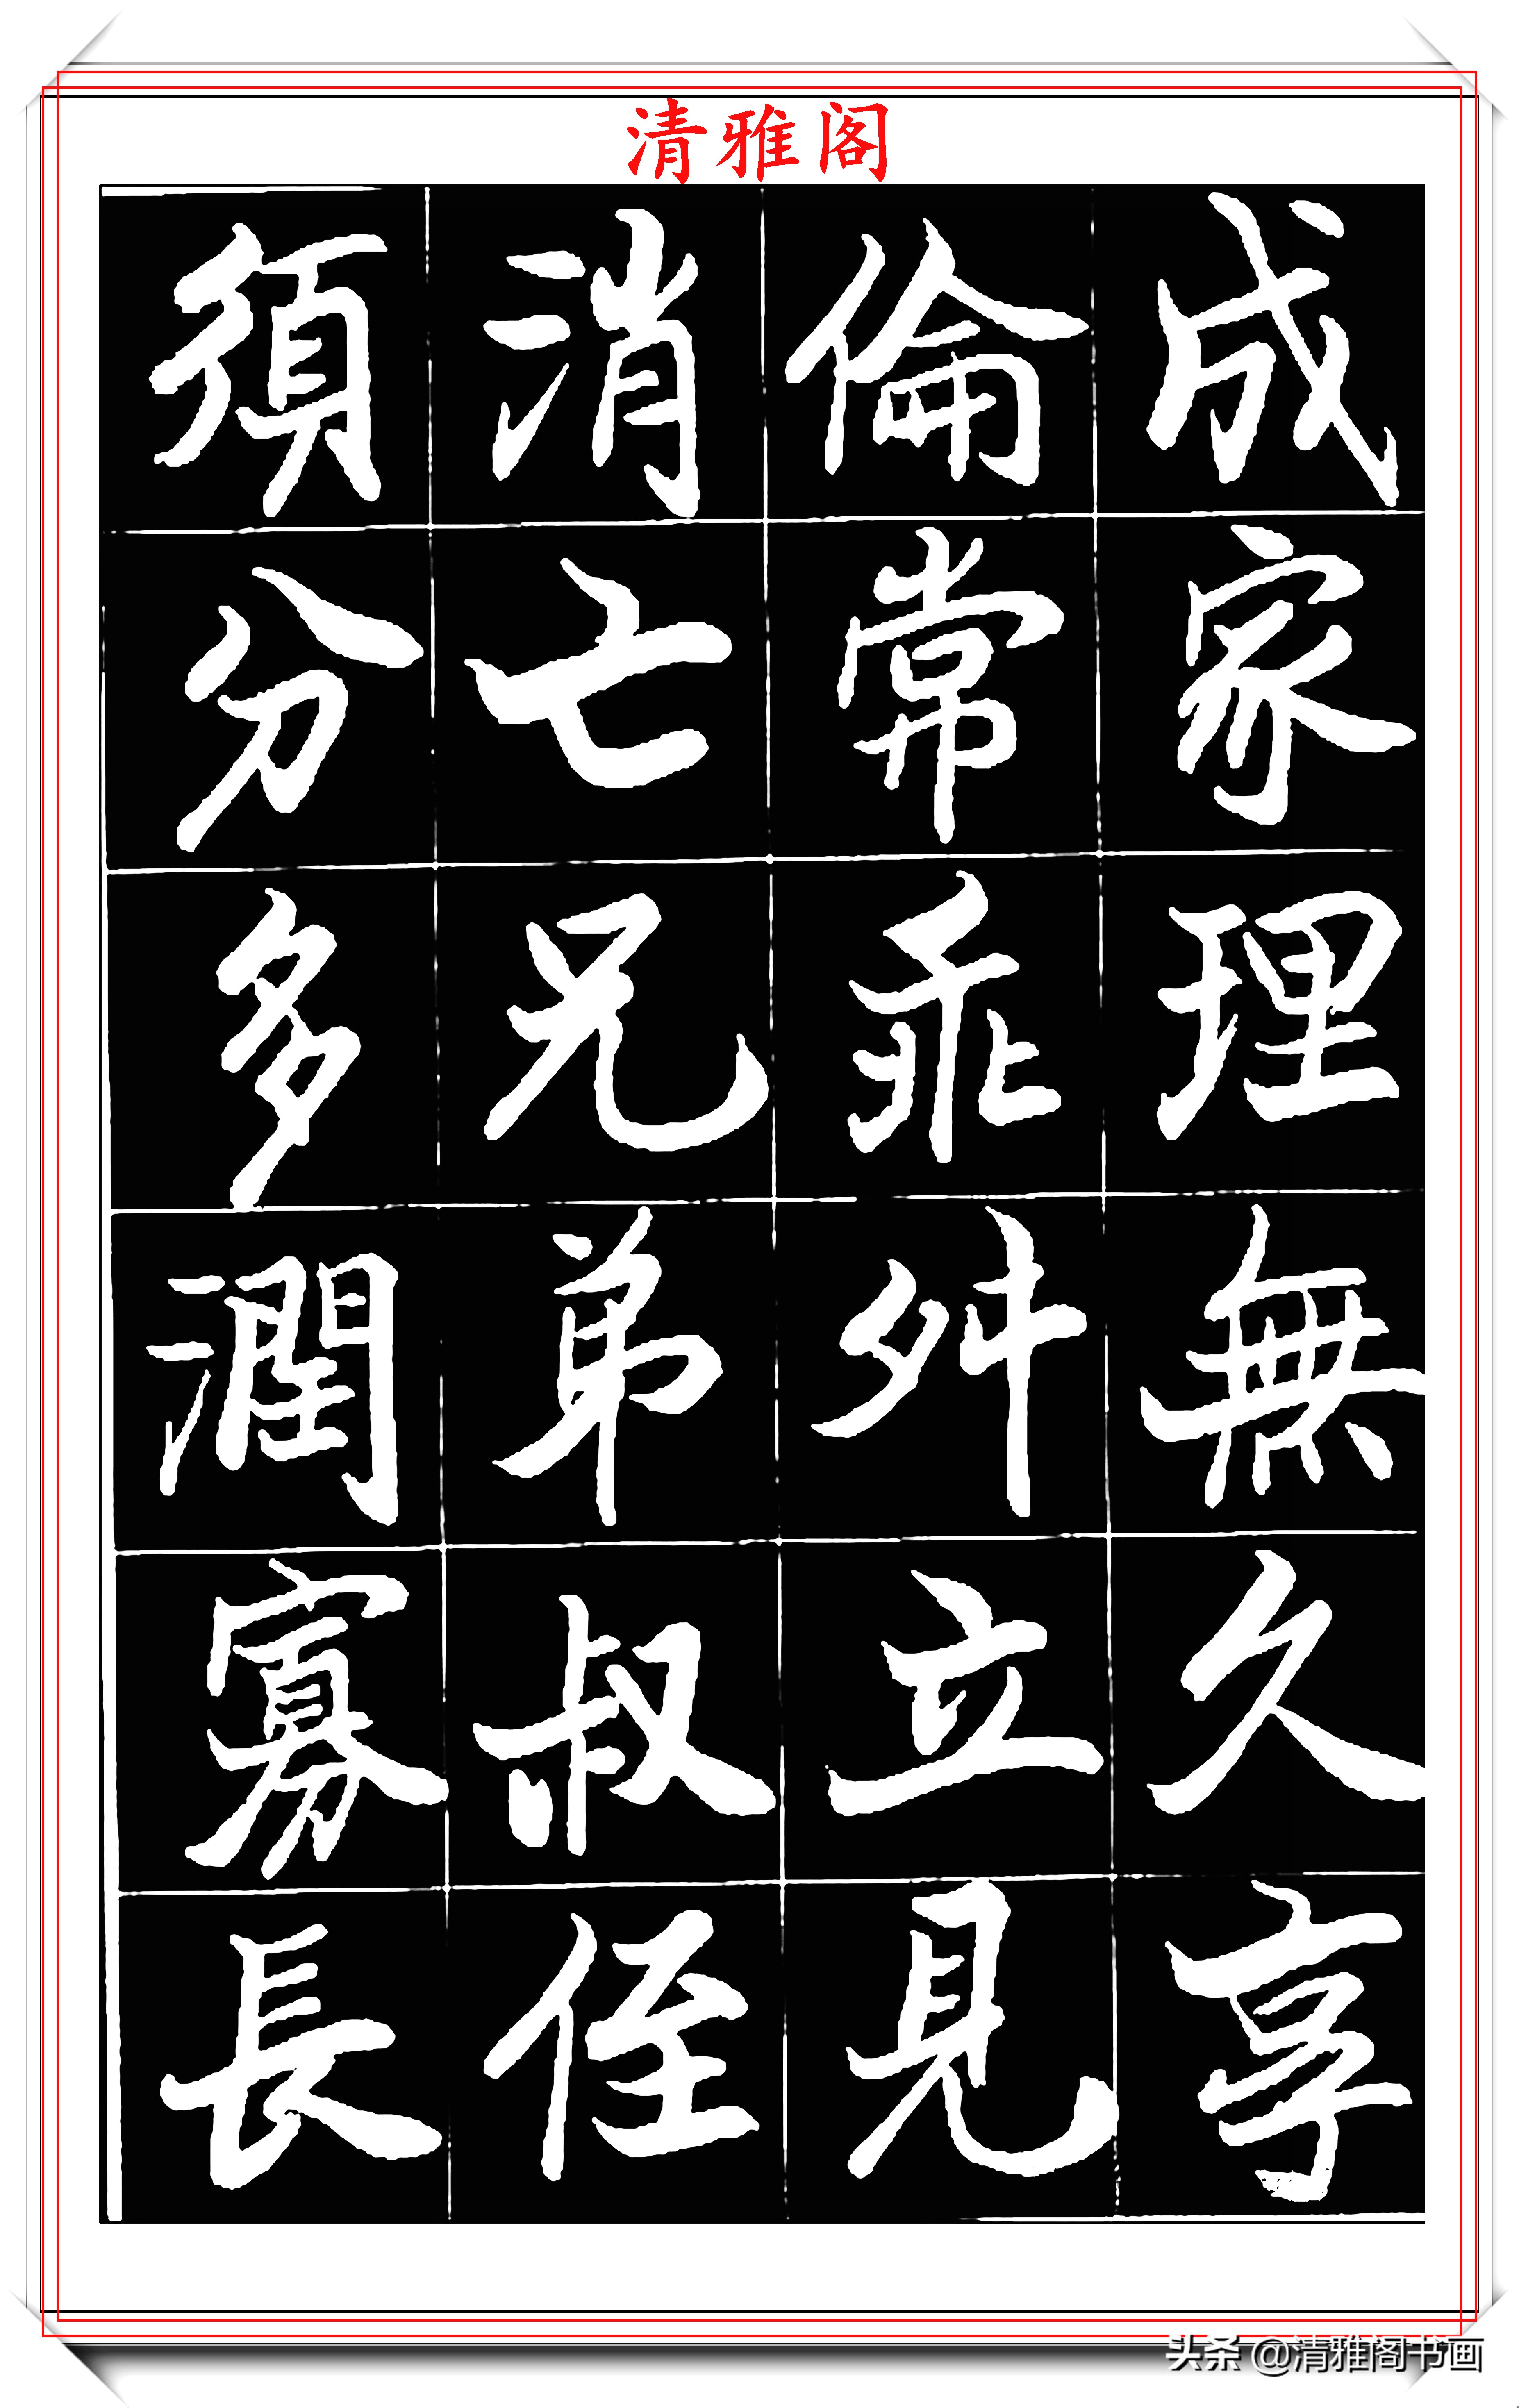 清雅阁
成家理無久享
倫常乖舛立見
消亡兄弟叔侄
須分多潤寡長
头条 @清雅阁书画